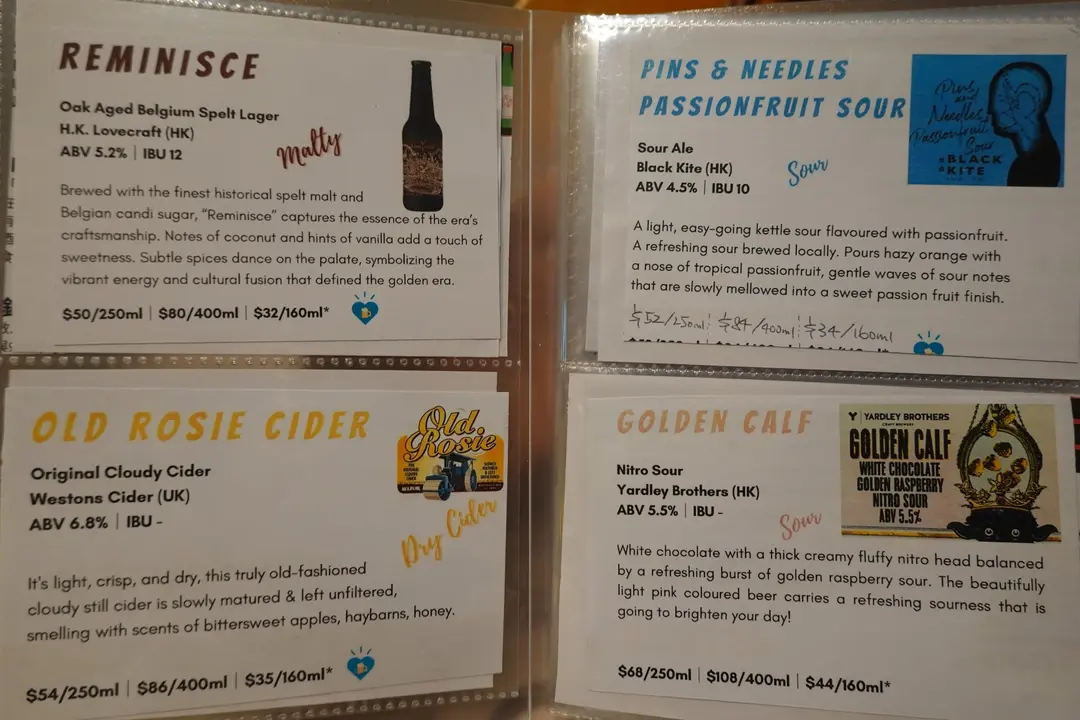 REMINISCE
Oak Aged Belgium Spelt Lager
H.K. Lovecraft (HK)
ABV 5.2% | IBU 12
Malty
Brewed with the finest historical spelt malt and
Belgian candi sugar, “Reminisce” captures the essence of the era’s
craftsmanship. Notes of coconut and hints of vanilla add a touch of
sweetness. Subtle spices dance on the palate, symbolizing the
vibrant energy and cultural fusion that defined the golden era.
$50/250ml | $80/400ml | $32/160ml*
OLD ROSIE CIDER
Old
Rosie
Original Cloudy Cider
Westons Cider (UK)
ABV 6.8% | IBU -
Dry Cider
It's light, crisp, and dry, this truly old-fashioned
cloudy still cider is slowly matured & left unfiltered,
smelling with scents of bittersweet apples, haybarns, honey.
$54/250ml | $86/400ml | $35/160ml*
PINS & NEEDLES
PASSIONFRUIT SOUR
Pins
and
Needles
Passionfruit
Sour
BLACK
KITE
Sour Ale
Black Kite (HK)
ABV 4.5% | IBU 10
Sour
A light, easy-going kettle sour flavoured with passionfruit.
A refreshing sour brewed locally. Pours hazy orange with
a nose of tropical passionfruit, gentle waves of sour notes
that are slowly mellowed into a sweet passion fruit finish.
$52/250ml | $84/400ml | $34/160ml
GOLDEN CALF
YARDLEY BROTHERS
CRAFT BREWERY
GOLDEN CALF
WHITE CHOCOLATE
GOLDEN RASPBERRY
NITRO SOUR
ABV 5.5%
Nitro Sour
Yardley Brothers (HK)
ABV 5.5% | IBU -
Sour
White chocolate with a thick creamy fluffy nitro head balanced
by a refreshing burst of golden raspberry sour. The beautifully
light pink coloured beer carries a refreshing sourness that is
going to brighten your day!
$68/250ml | $108/400ml | $44/160ml*